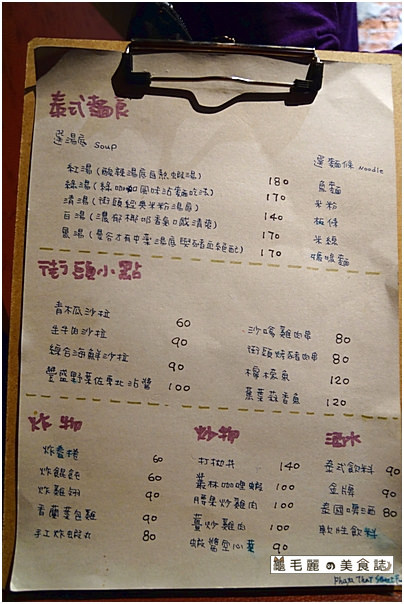 泰式麵食
選湯底 Soup
選麵條 Noodle
紅湯(酸辣湯底自熬蝦湯) 180
綠湯(綠咖哩風味沾麵吃法) 170
清湯(街頭經典米粉湯底) 170
白湯(濃郁椰奶香口感清爽) 140
黑湯(曼谷才有中藥湯底與豬血絕配) 170
170
魚麵
米粉
板條
米線
媽媽麵
街頭小點
青木瓜沙拉 60
生牛肉沙拉 90
綜合海鮮沙拉 90
豐盛野菜佐東北沾醬 100
沙嗲雞肉串 80
街頭烤豬肉串 80
檸檬魚 120
蕉葉蒜香魚 120
炸物
炸春捲 60
炸餛飩 60
炸雞翅 90
香蘭葉包雞 90
手工炸蝦丸 80
炒物
打拋共 140
叢林咖哩蝦 100
腰果炒雞肉 100
薑炒雞肉 100
蝦醬空心菜 90
酒水
泰式飲料 90
金牌
泰國啤酒
軟性飲料
毛麗の美食誌
Phara Thai Street